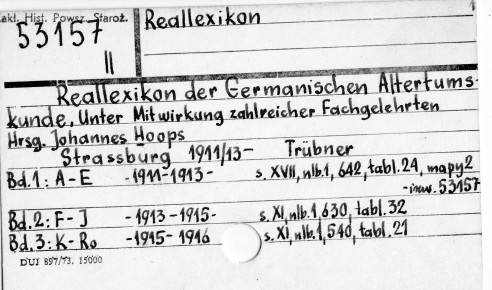 Zakł. Hist. Powsz. Staroż.
53157
II
Reallexikon
Reallexikon der Germanischen Altertums-
kunde. Unter Mitwirkung zahlreicher Fachgelehrten
Hrsg. Johannes Hoops
Strassburg 1911/13- Trübner
Bd.1: A-E -1911-1913- s. XVII, nlb.1, 642, tabl.24, mapy2
-inw. 53157
Bd.2: F-J -1913-1915- s. XI, nlb.1, 630, tabl.32
Bd.3: K-Ro -1915-1916 s. XI, nlb.1, 540, tabl.21
DUJ 897/73. 15000